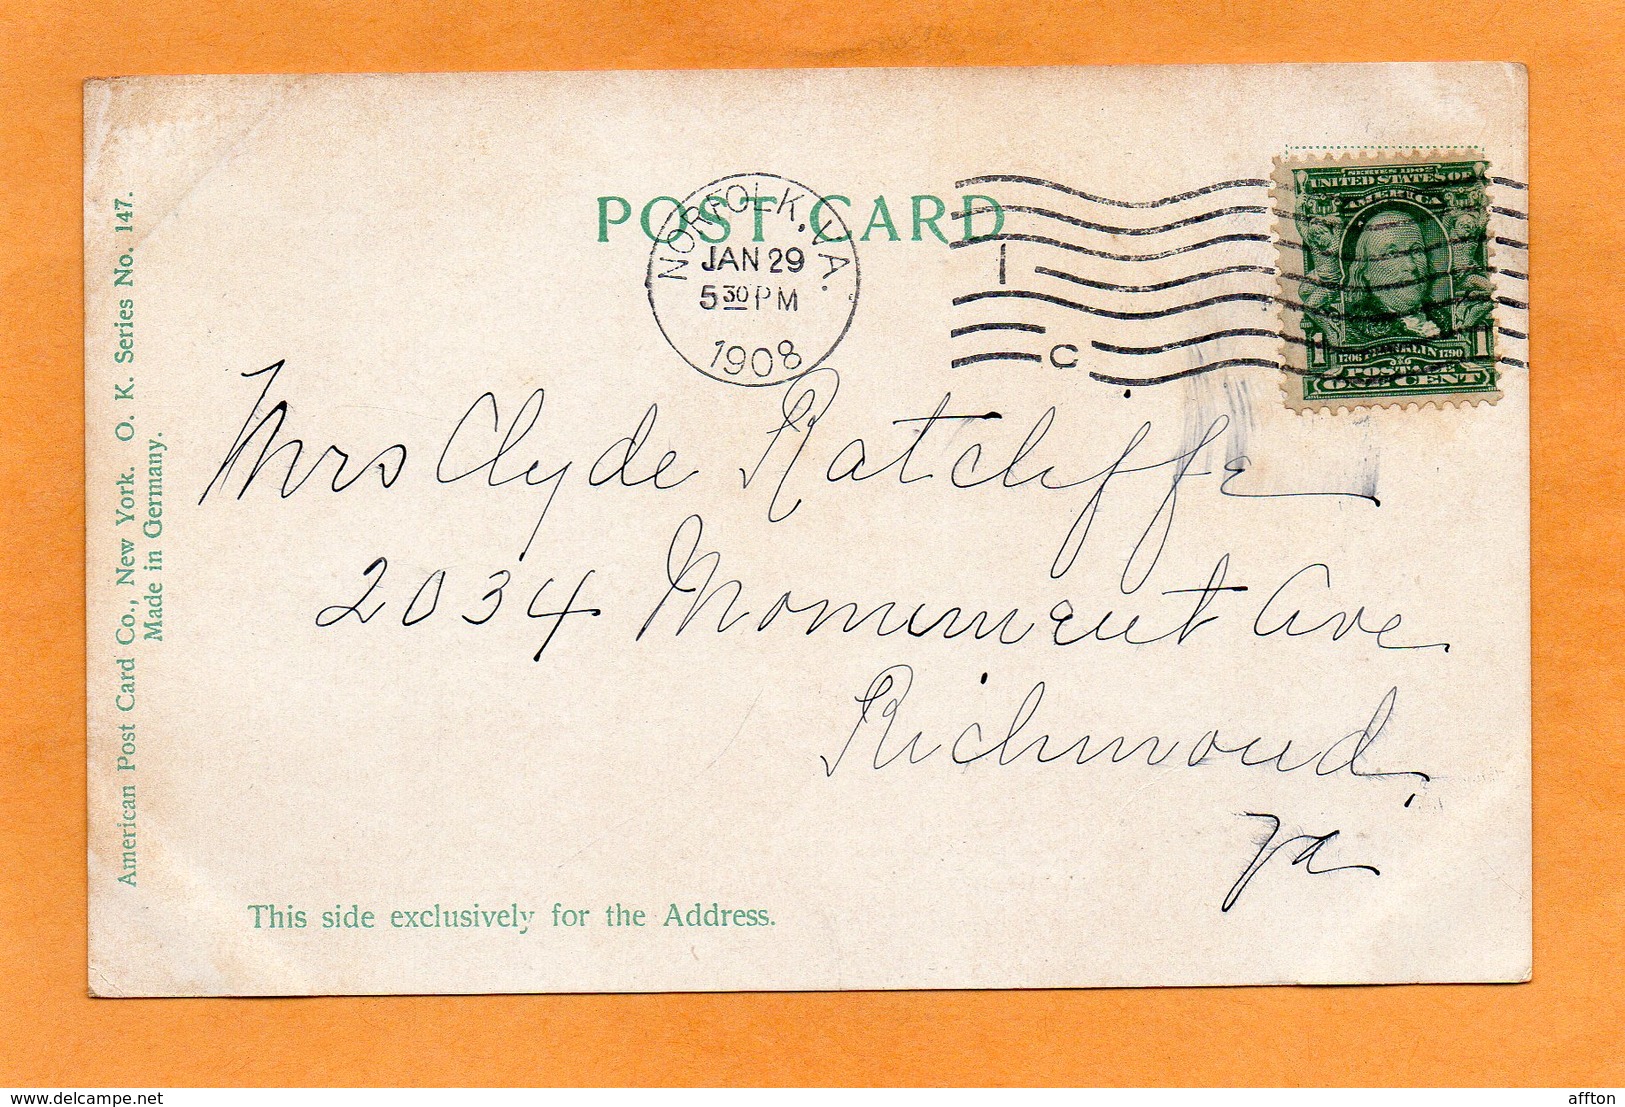 POST CARD
NORFOLK, VA.
JAN 29
5 30 PM
1908
1
C
SERIES 1902
UNITED STATES OF
AMERICA
1706 FRANKLIN 1790
1 1
POSTAGE
ONE CENT
Mrs Clyde Ratcliffe
2034 Monument Ave
Richmond,
Va
This side exclusively for the Address.
American Post Card Co., New York. O. K. Series No. 147.
Made in Germany.
www.delcampe.net
affton